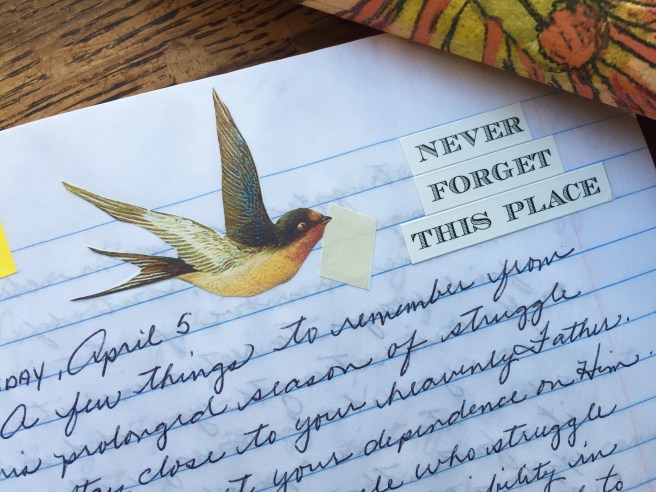 NEVER
FORGET
THIS PLACE
DAY, April 5
A few things to remember from
prolonged season of struggle
close to your heavenly Father.
your dependence on Him.
who struggle
in
to